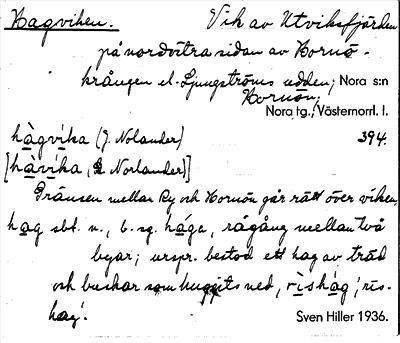 Hagviken. Vik av Utviksfjärden
på nordöstra sidan av Hornö-
krången el. Ljungströms udden; Nora s:n
Hornön; Nora tg., Västernorrl. l.
hàgvika (J. Nolander) 394.
[hàvika, E Norlander)]
Gränsen mellan Ry och Hornön går rätt över viken,
hag sbt. n., b. sg. hága, rågång mellan två
byar; urspr. bestod ett hag av träd
och buskar som huggits ned, rishág; ris-
hag.
Sven Hiller 1936.